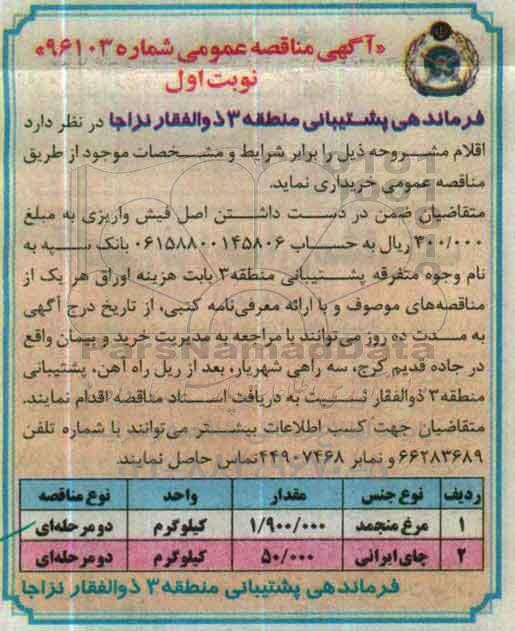 «آگهی مناقصه عمومی شماره ۹۶۱۰۳»
نوبت اول
فرماندهی پشتیبانی منطقه ۳ ذوالفقار نزاجا در نظر دارد
اقلام مشروحه ذیل را برابر شرایط و مشخصات موجود از طریق
مناقصه عمومی خریداری نماید.
متقاضیان ضمن در دست داشتن اصل فیش واریزی به مبلغ
۳۰۰/۰۰۰ ریال به حساب ۰۶۱۵۸۸۰۰۱۴۵۸۰۶ بانک سپه به
نام وجوه متفرقه پشتیبانی منطقه۳ بابت هزینه اوراق هر یک از
مناقصه‌های موصوف و با ارائه معرفی‌نامه کتبی، از تاریخ درج آگهی
به مدت ده روز می‌توانند با مراجعه به مدیریت خرید و پیمان واقع
در جاده قدیم کرج، سه راهی شهریار، بعد از ریل راه آهن، پشتیبانی
منطقه۳ ذوالفقار نسبت به دریافت اسناد مناقصه اقدام نمایند.
متقاضیان جهت کسب اطلاعات بیشتر می‌توانند با شماره تلفن
۶۶۲۸۳۶۸۹ و نمابر ۴۴۹۰۷۴۶۸تماس حاصل نمایند.
ردیف نوع جنس مقدار واحد نوع مناقصه
۱ مرغ منجمد ۱/۹۰۰/۰۰۰ کیلوگرم دو مرحله‌ای
۲ چای ایرانی ۵۰/۰۰۰ کیلوگرم دو مرحله‌ای
فرماندهی پشتیبانی منطقه ۳ ذوالفقار نزاجا
ParsNamadData